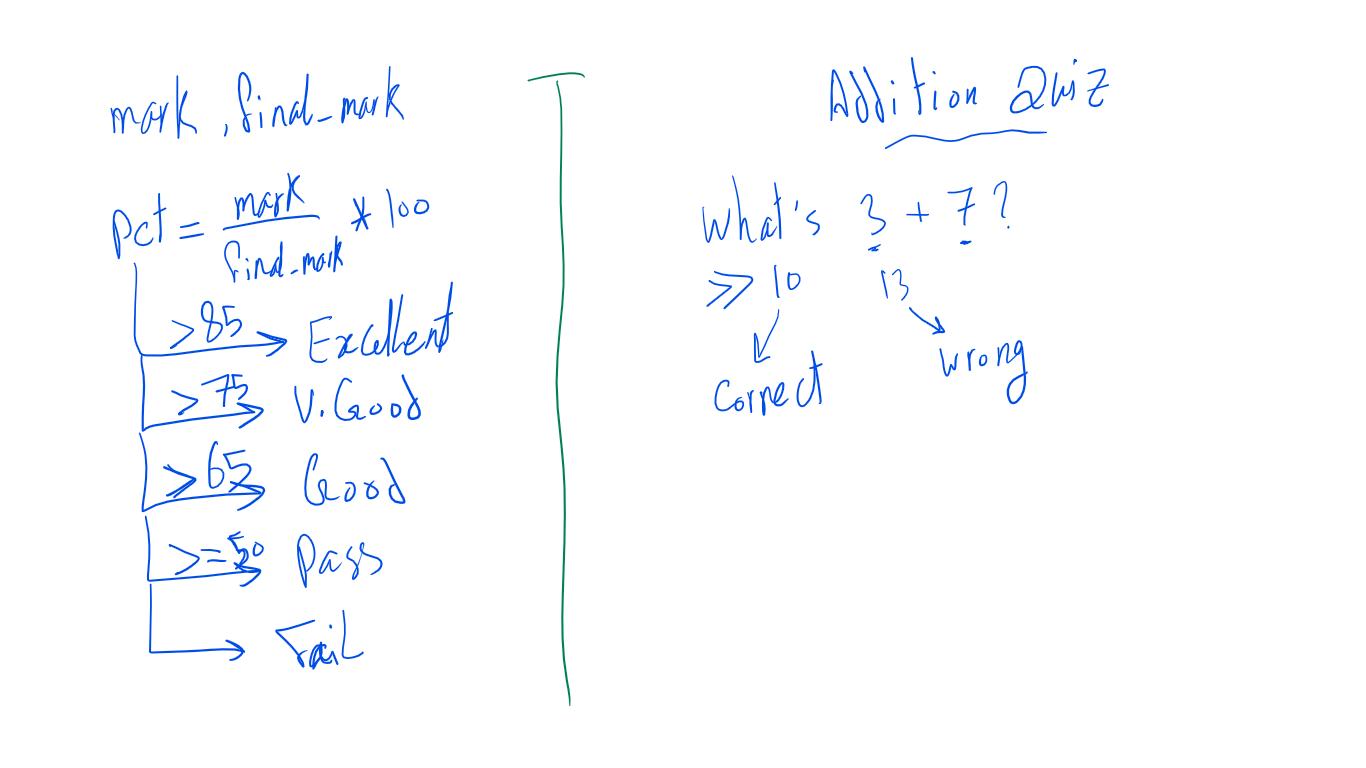 mark, final_mark
Pct = mark / final_mark * 100
>85 Excellent
>75 V.Good
>65 Good
>=50 Pass
Fail
Addition Quiz
What's 3 + 7?
>> 10 13
Correct wrong